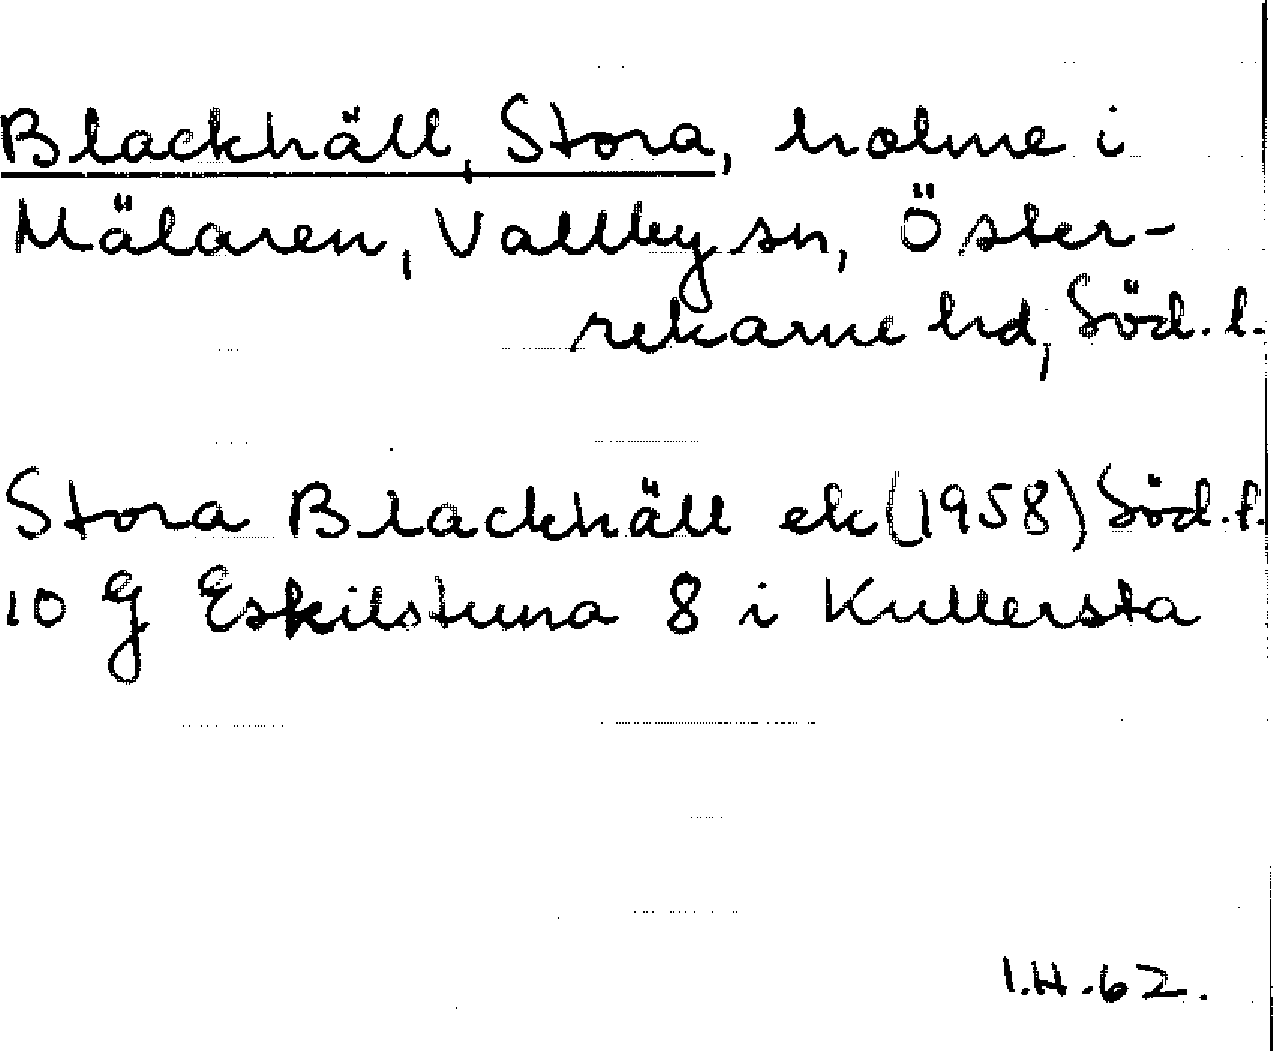 Blackhäll, Stora, holme i
Mälaren, Vallby sn, Öster-
rekarne hd, Söd. l.
Stora Blackhäll ek (1958) Söd. l.
10 g Eskilstuna 8 i Kullersta
I.H. 62.